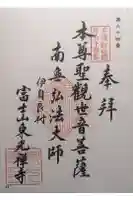 第六十四番
奉拝
本尊聖觀世音菩薩
南無弘法大師
伊自良村
富士山東光禅寺